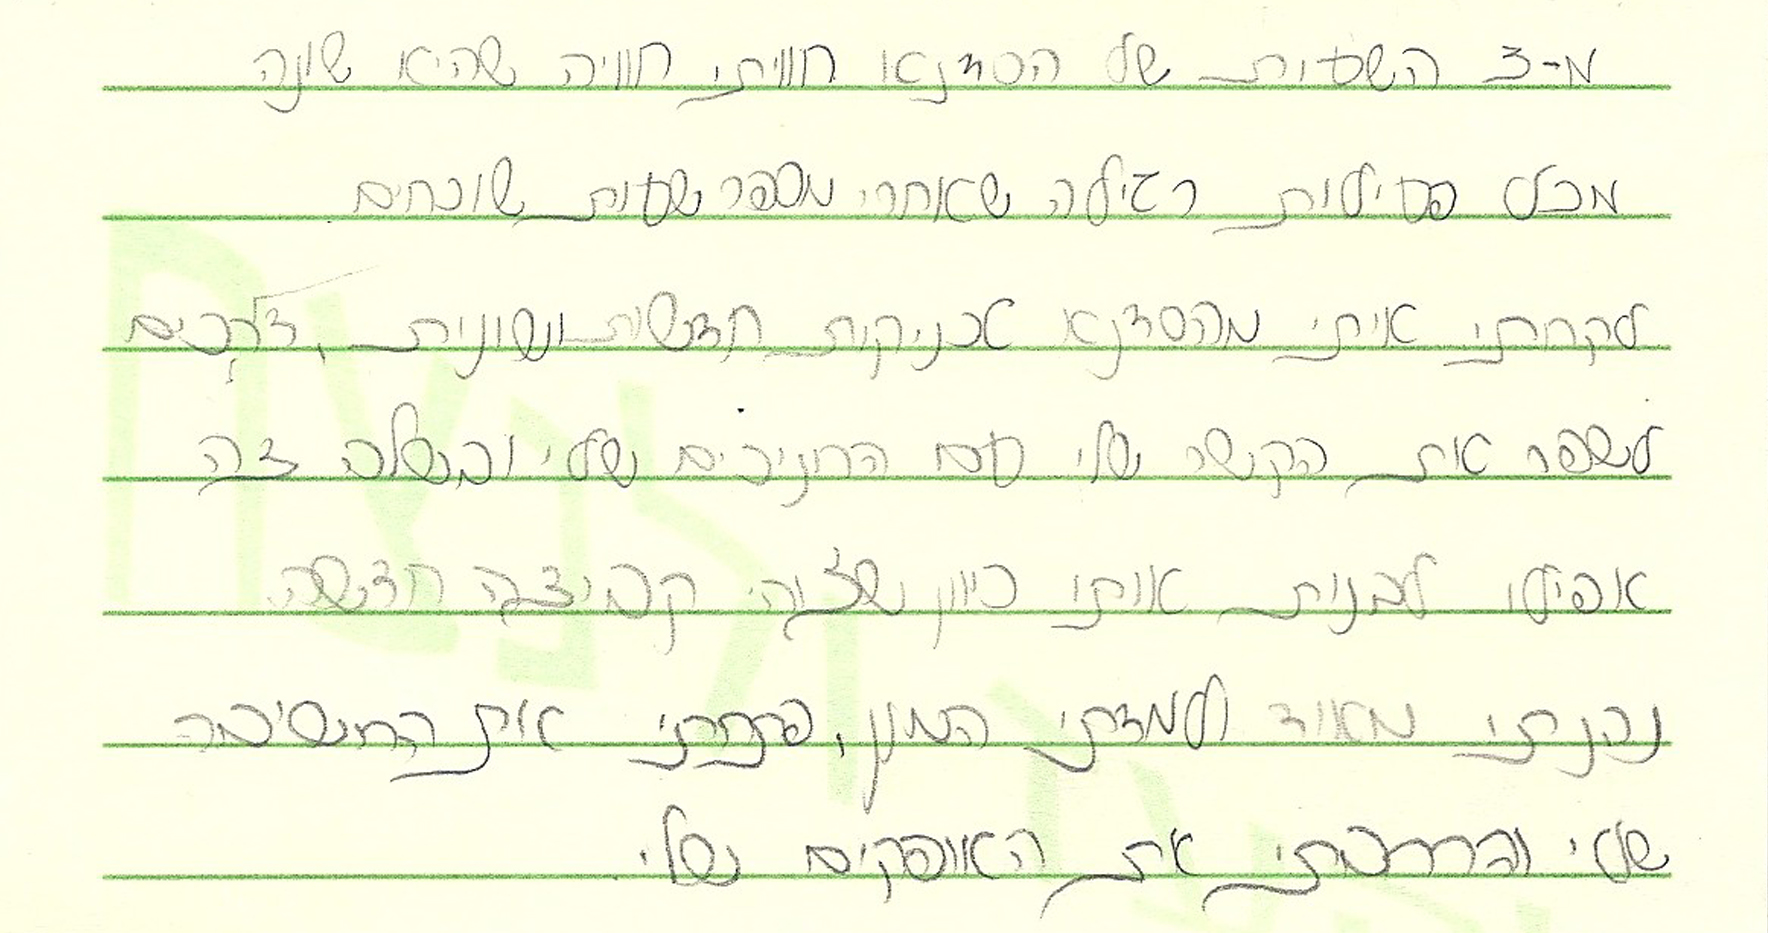 מ-3 השעות של הסדנא חוויתי חוויה שהיא שונה
מכל פעילות רגילה שאחרי מספר שעות שוכחים.
לקחתי איתי מהסדנא טכניקות חדשות ושונות, דרכים
לשפר את הקשר שלי עם החניכים שלי ובשלב זה
אפילו לבנות אותו כיוון שזוהי קבוצה חדשה.
נהניתי מאוד למדתי המון, פתחתי את החשיבה
שלי והרחבתי את האופקים שלי.